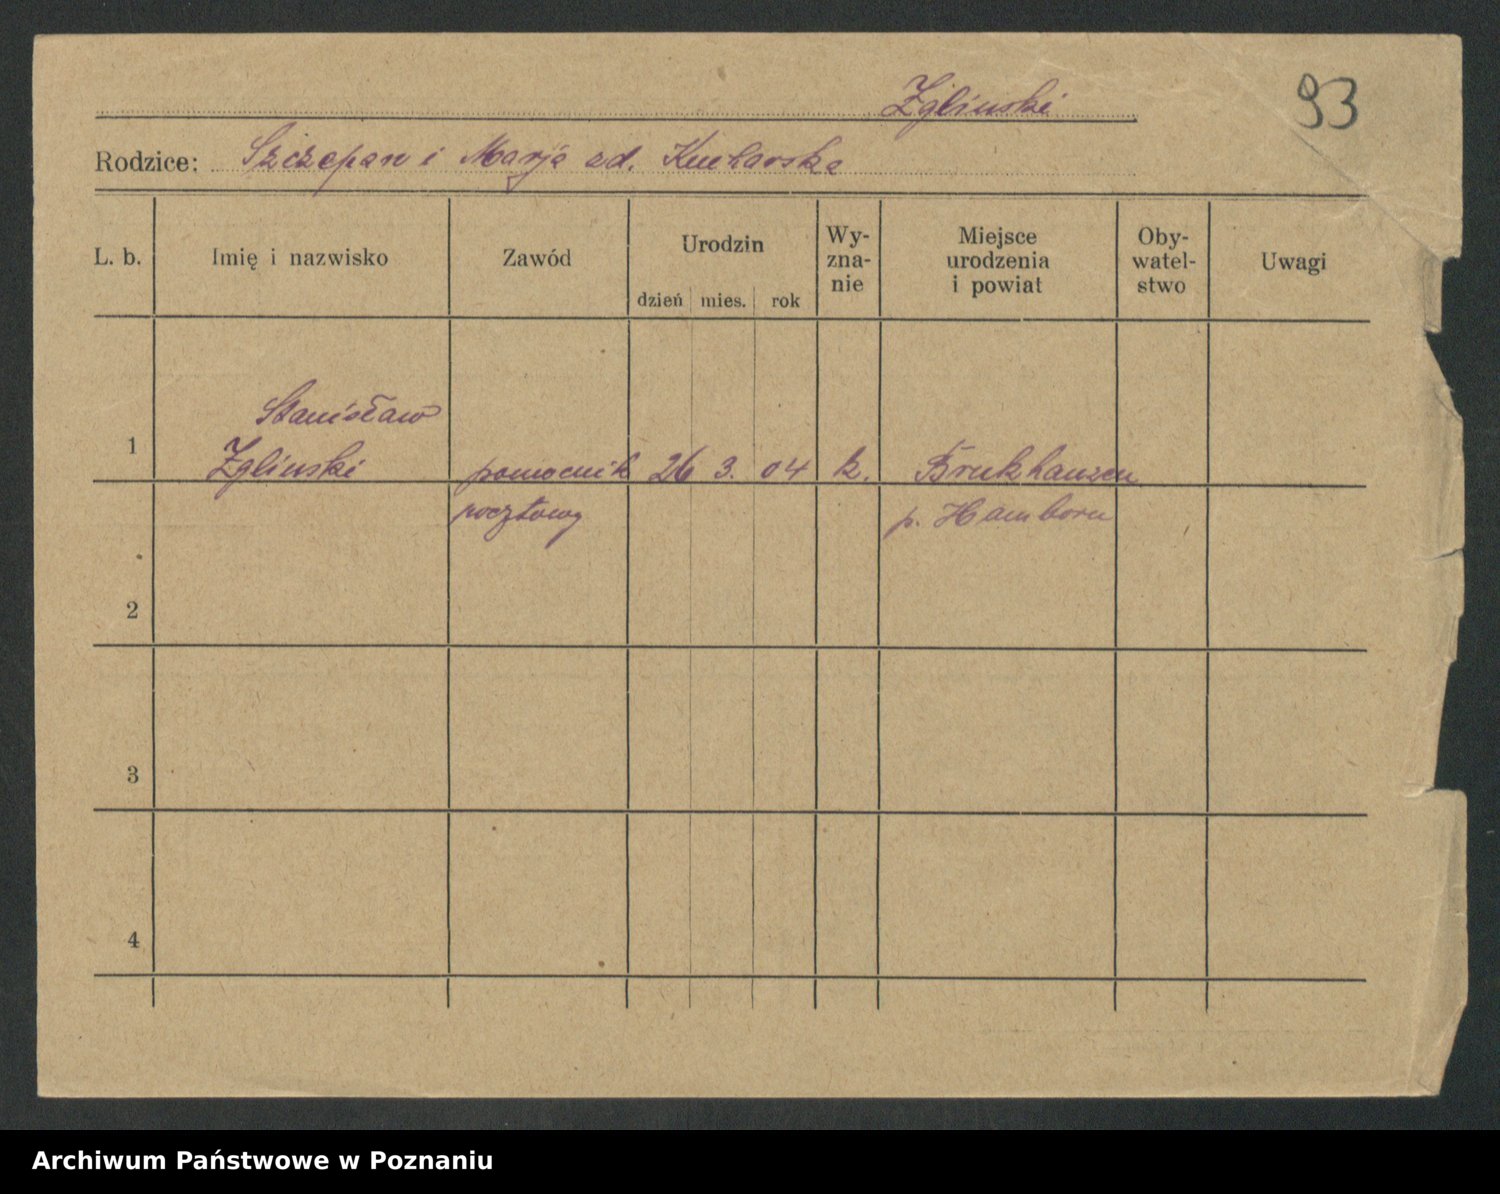 Zgliński
93
Rodzice: Szczepan i Marja zd. Kucharska
L. b. Imię i nazwisko Zawód Urodzin dzień mies. rok Wyznanie Miejsce urodzenia i powiat Obywatelstwo Uwagi
Stanisław
1 Zgliński pomocnik 26 3. 04 k. Brukhausen
pocztowy p. Hamborn
2
3
4
Archiwum Państwowe w Poznaniu